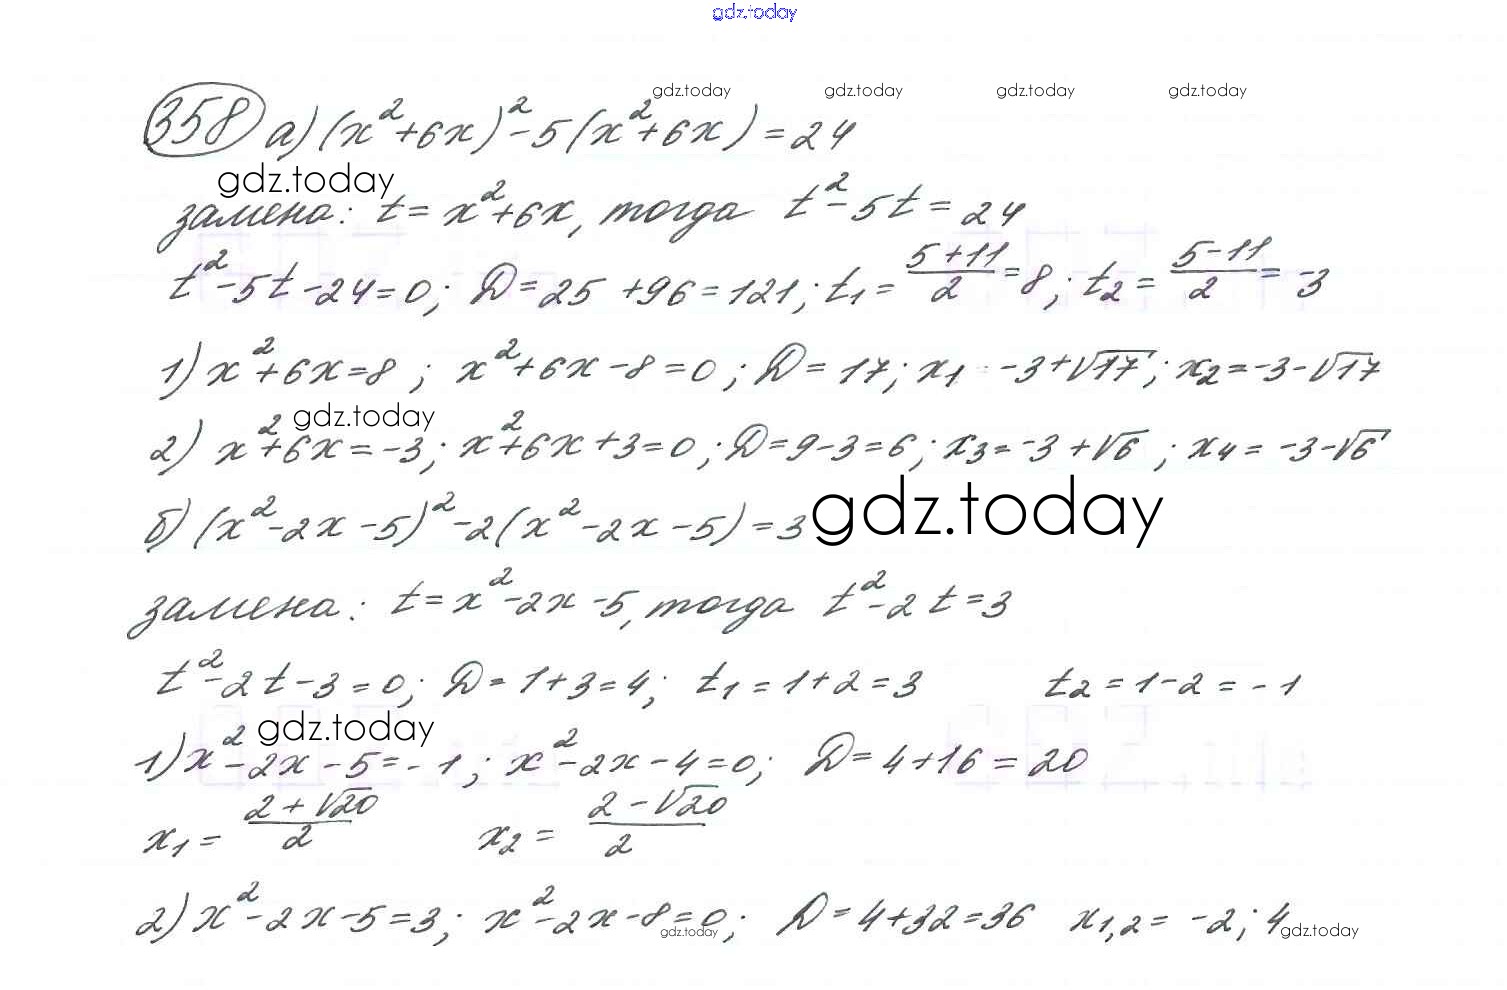 gdz.today
gdz.today gdz.today gdz.today gdz.today
358 а) (x²+6x)²-5(x²+6x)=24
gdz.today
замена: t=x²+6x, тогда t²-5t=24
t²-5t-24=0; D=25+96=121; t₁=(5+11)/2=8; t₂=(5-11)/2=-3
1) x²+6x=8; x²+6x-8=0; D=17; x₁ -3+√17; x₂=-3-√17
gdz.today
2) x²+6x=-3; x²+6x+3=0; D=9-3=6; x₃=-3+√6; x₄=-3-√6
б) (x²-2x-5)²-2(x²-2x-5)=3
gdz.today
замена: t=x²-2x-5, тогда t²-2t=3
t²-2t-3=0; D=1+3=4; t₁=1+2=3 t₂=1-2=-1
gdz.today
1) x²-2x-5=-1; x²-2x-4=0; D=4+16=20
x₁=(2+√20)/2 x₂=(2-√20)/2
2) x²-2x-5=3; x²-2x-8=0; D=4+32=36 x₁,₂=-2; 4
gdz.today gdz.today